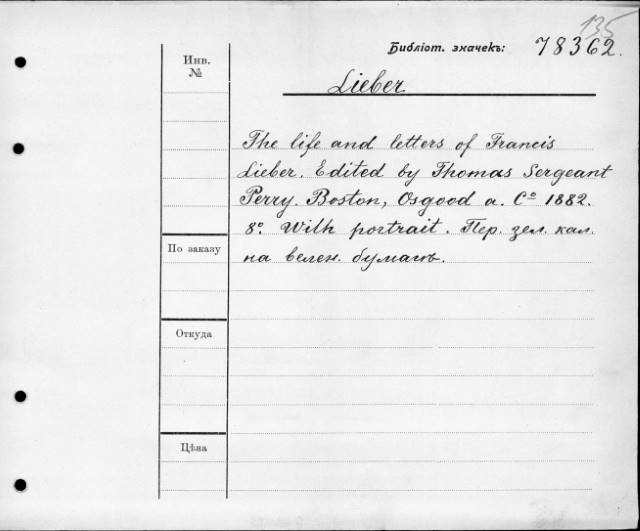 135
Библіот. значекъ: 78362.
Инв.
№
Lieber
The life and letters of Francis
Lieber. Edited by Thomas Sergeant
Perry. Boston, Osgood a. Cº 1882.
8º. With portrait. Пер. зел. кал.
на велен. бумагѣ.
По заказу
Откуда
Цѣна